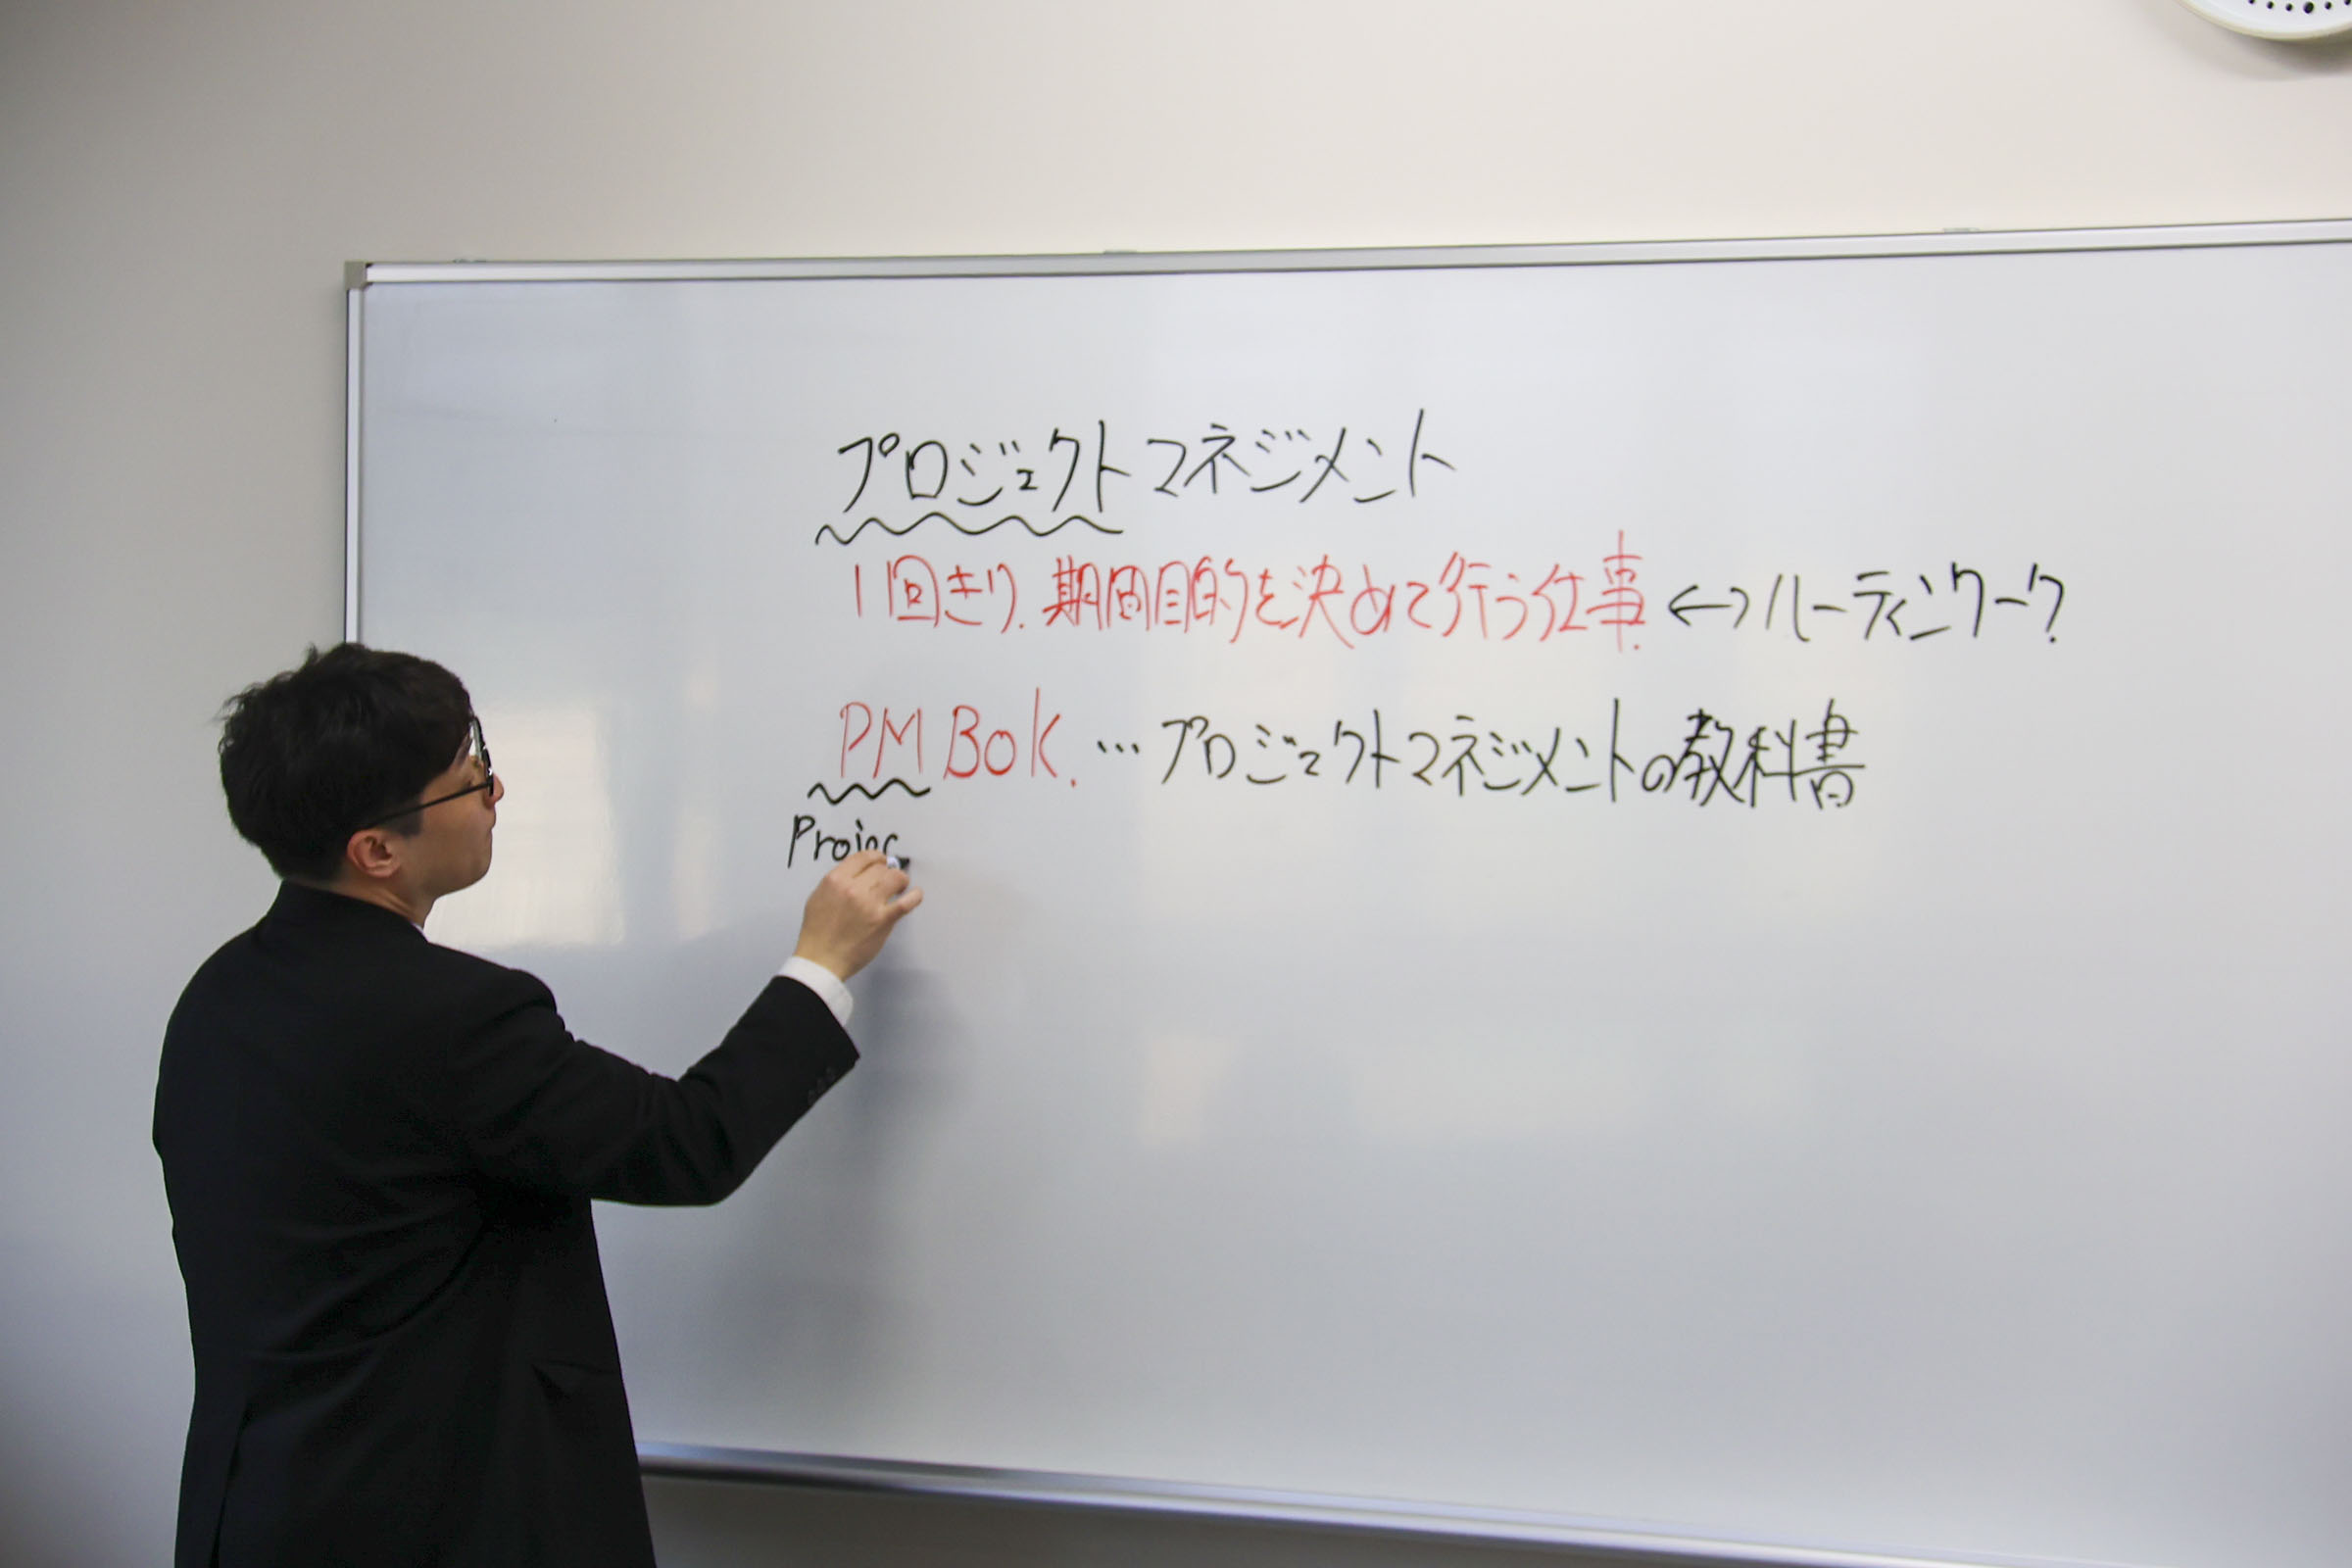 プロジェクトマネジメント
1回きり.期間目的を決めて行う仕事. ←→ ルーティンワーク
PMBOK. … プロジェクトマネジメントの教科書
Projec